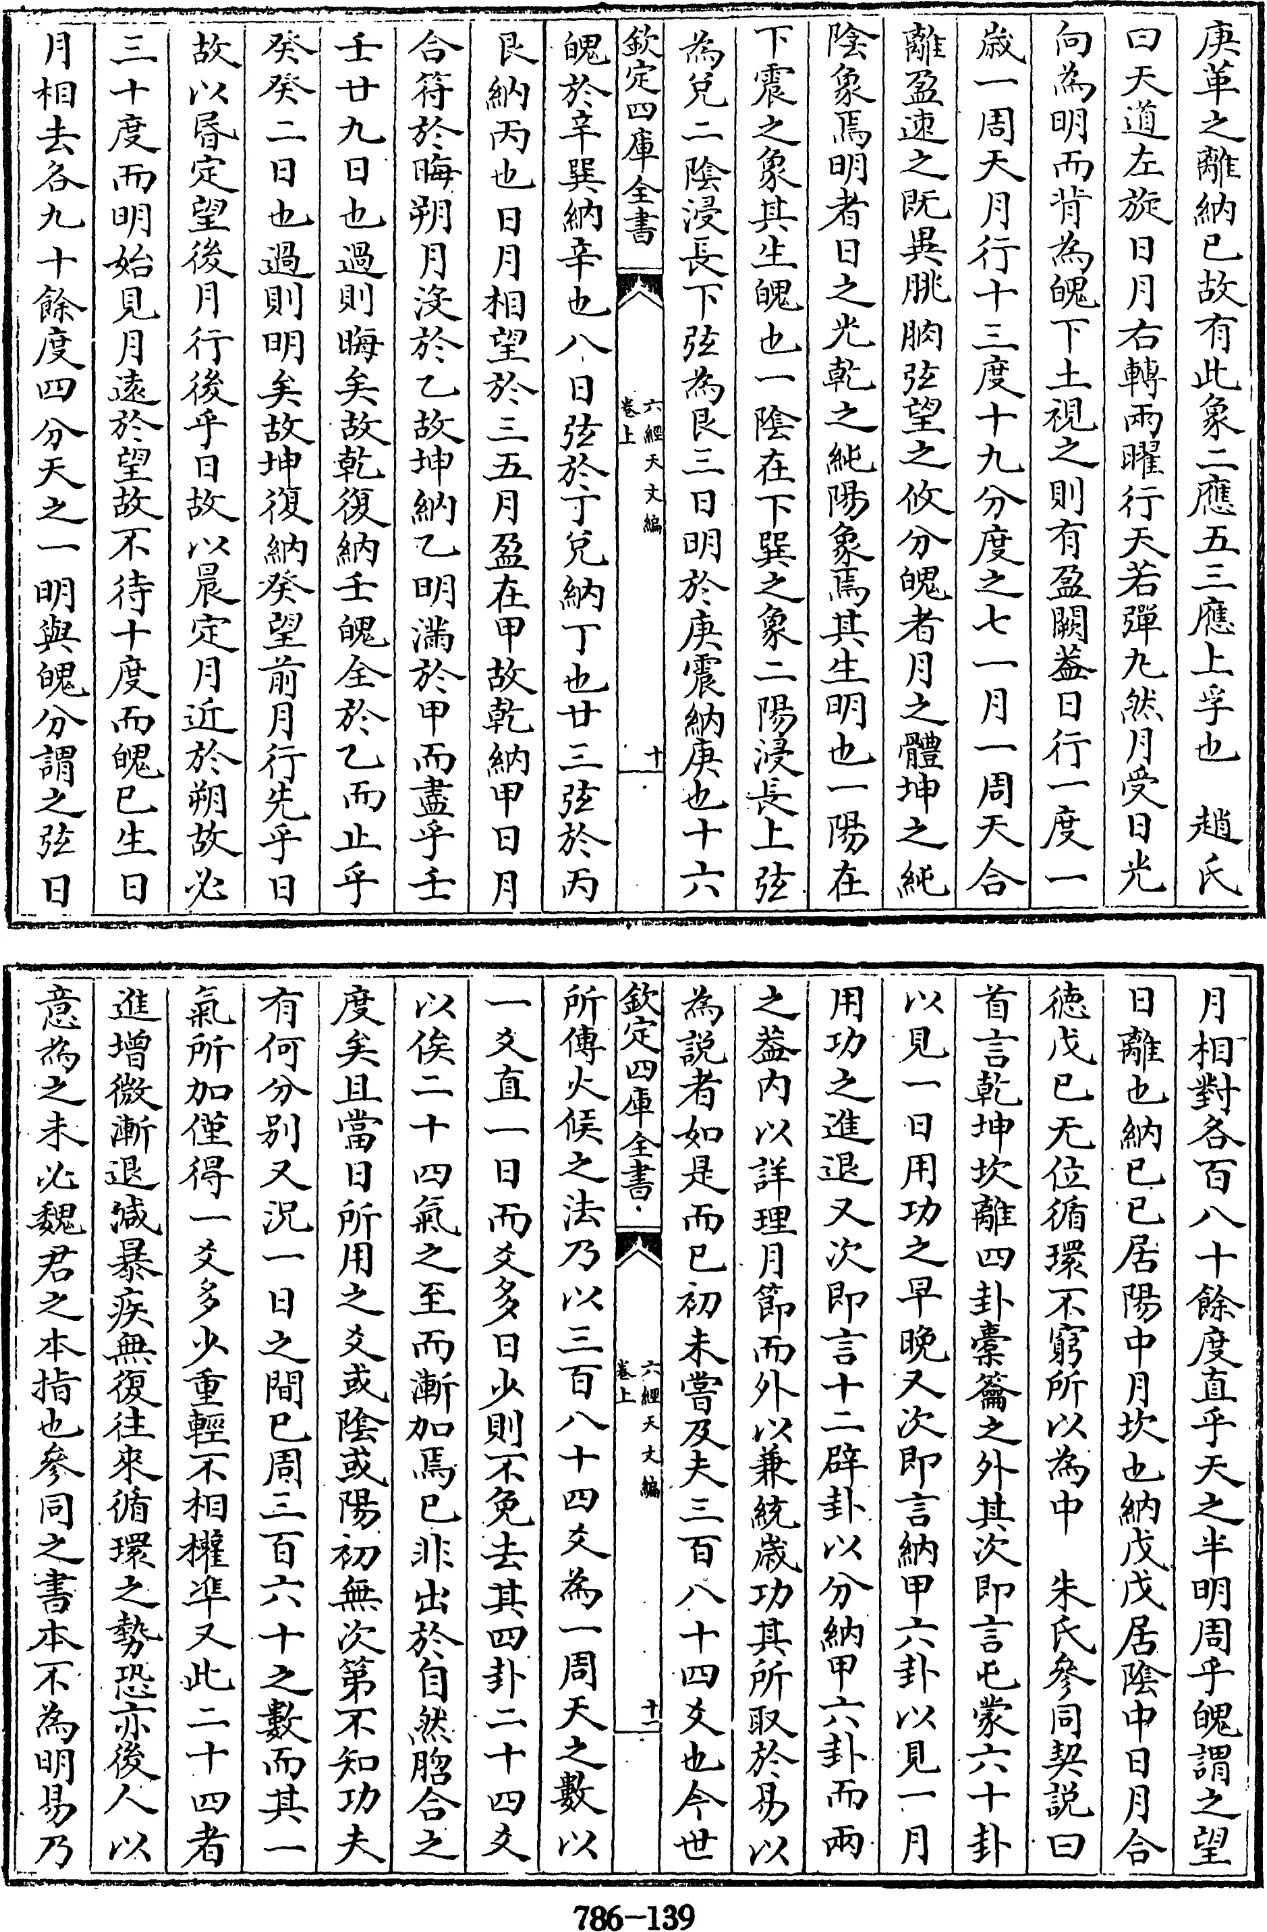 庚革之離納已故有此象二應五三應上孚也　趙氏
曰天道左旋日月右轉兩曜行天若彈丸然月受日光
向為明而背為魄下土視之則有盈闕葢日行一度一
歳一周天月行十三度十九分度之七一月一周天合
離盈速之既異朓朒弦望之攸分魄者月之體坤之純
陰象焉明者日之光乾之純陽象焉其生明也一陽在
下震之象其生魄也一陰在下巽之象二陽浸長上弦
為兌二陰浸長下弦為艮三日明於庚震納庚也十六
欽定四庫全書
六經天文編
卷上
十
魄於辛巽納辛也八日弦於丁兌納丁也廿三弦於丙
艮納丙也日月相望於三五月盈在甲故乾納甲日月
合符於晦朔月沒於乙故坤納乙明滿於甲而盡乎壬
壬廿九日也過則晦矣故乾復納壬魄全於乙而止乎
癸癸二日也過則明矣故坤復納癸望前月行先乎日
故以昬定望後月行後乎日故以晨定月近於朔故必
三十度而明始見月遠於望故不待十度而魄已生日
月相去各九十餘度四分天之一明與魄分謂之弦日
月相對各百八十餘度直乎天之半明周乎魄謂之望
日離也納已已居陽中月坎也納戊戊居陰中日月合
徳戊已无位循環不窮所以為中　朱氏參同契說曰
首言乾坤坎離四卦橐籥之外其次即言屯蒙六十卦
以見一日用功之早晚又次即言納甲六卦以見一月
用功之進退又次即言十二辟卦以分納甲六卦而兩
之葢内以詳理月節而外以兼統歳功其所取於易以
為説者如是而已初未嘗及夫三百八十四爻也今世
欽定四庫全書
六經天文編
卷上
十一
所傳火候之法乃以三百八十四爻為一周天之數以
一爻直一日而爻多日少則不免去其四卦二十四爻
以俟二十四氣之至而漸加焉已非出於自然脗合之
度矣且當日所用之爻或陰或陽初無次第不知功夫
有何分别又況一日之間已周三百六十之數而其一
氣所加僅得一爻多少重輕不相權準又此二十四者
進增微漸退減暴疾無復往來循環之勢恐亦後人以
意為之未必魏君之本指也參同之書本不為明易乃
786-139